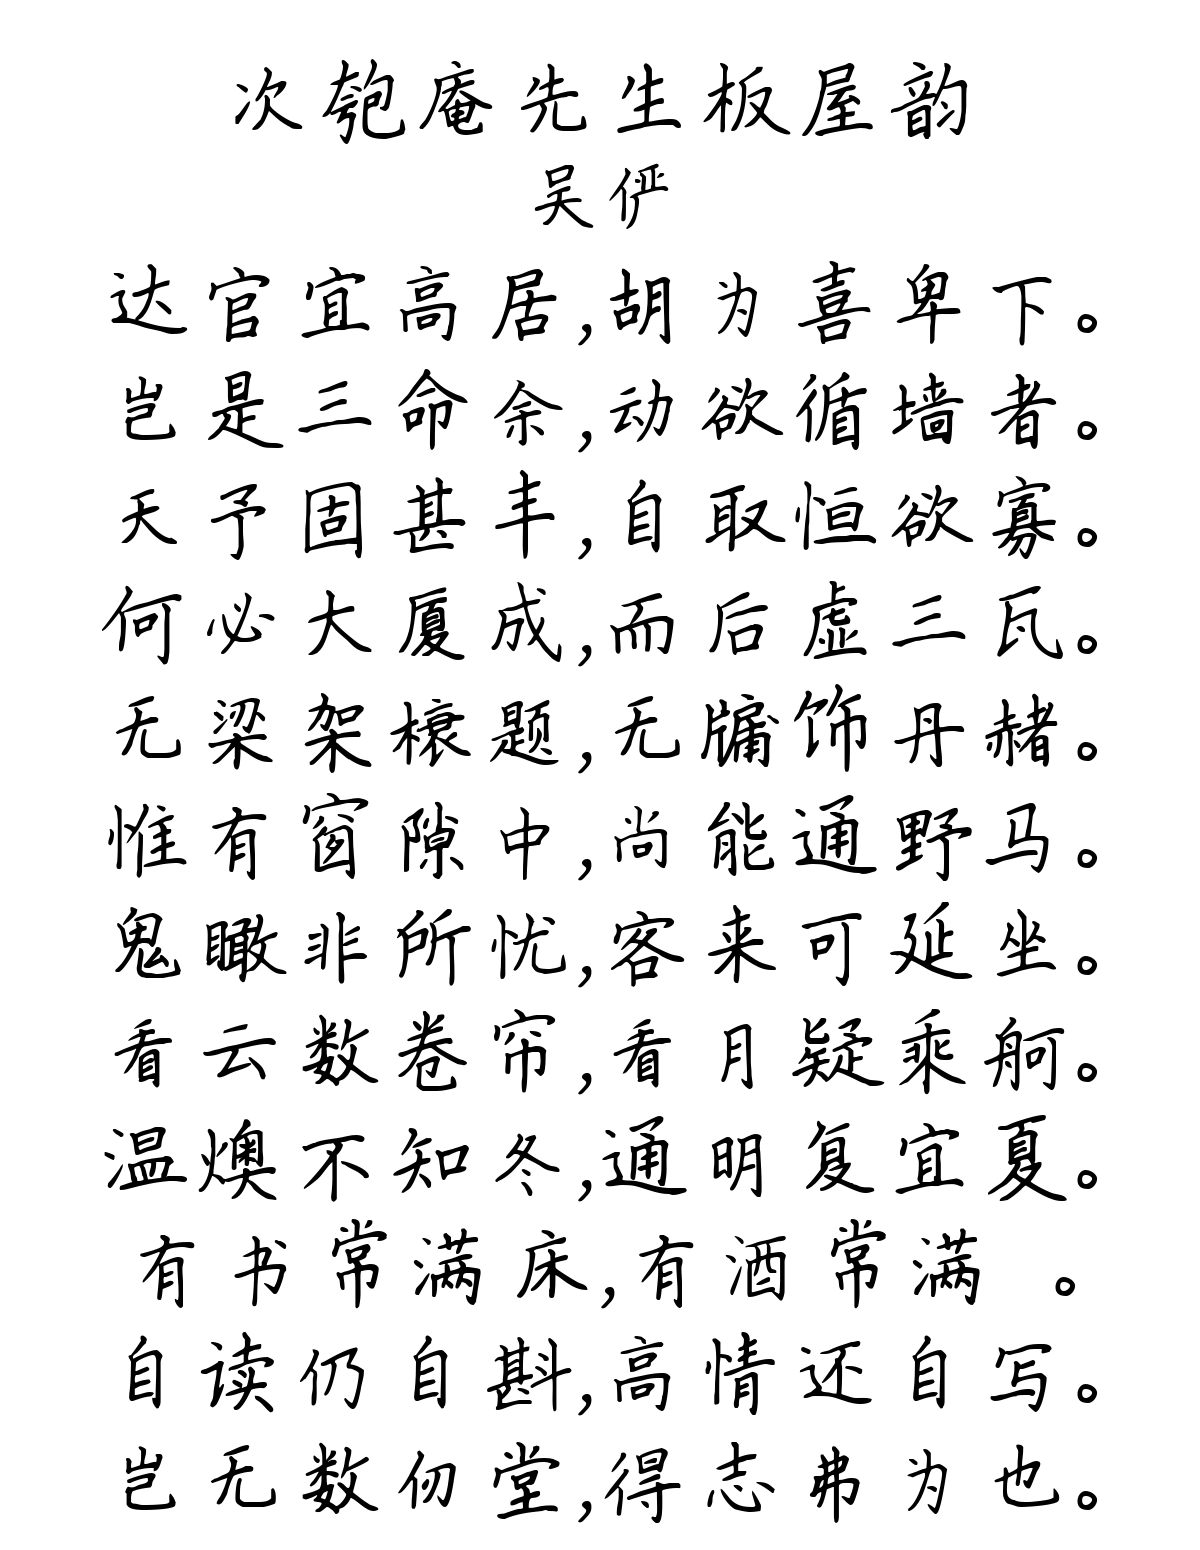 次匏庵先生板屋韵
吴俨
达官宜高居,胡为喜卑下。
岂是三命余,动欲循墙者。
天予固甚丰,自取恒欲寡。
何必大厦成,而后虚三瓦。
无梁架榱题,无牖饰丹赭。
惟有窗隙中,尚能通野马。
鬼瞰非所忧,客来可延坐。
看云数卷帘,看月疑乘舸。
温燠不知冬,通明复宜夏。
有书常满床,有酒常满 。
自读仍自斟,高情还自写。
岂无数仞堂,得志弗为也。